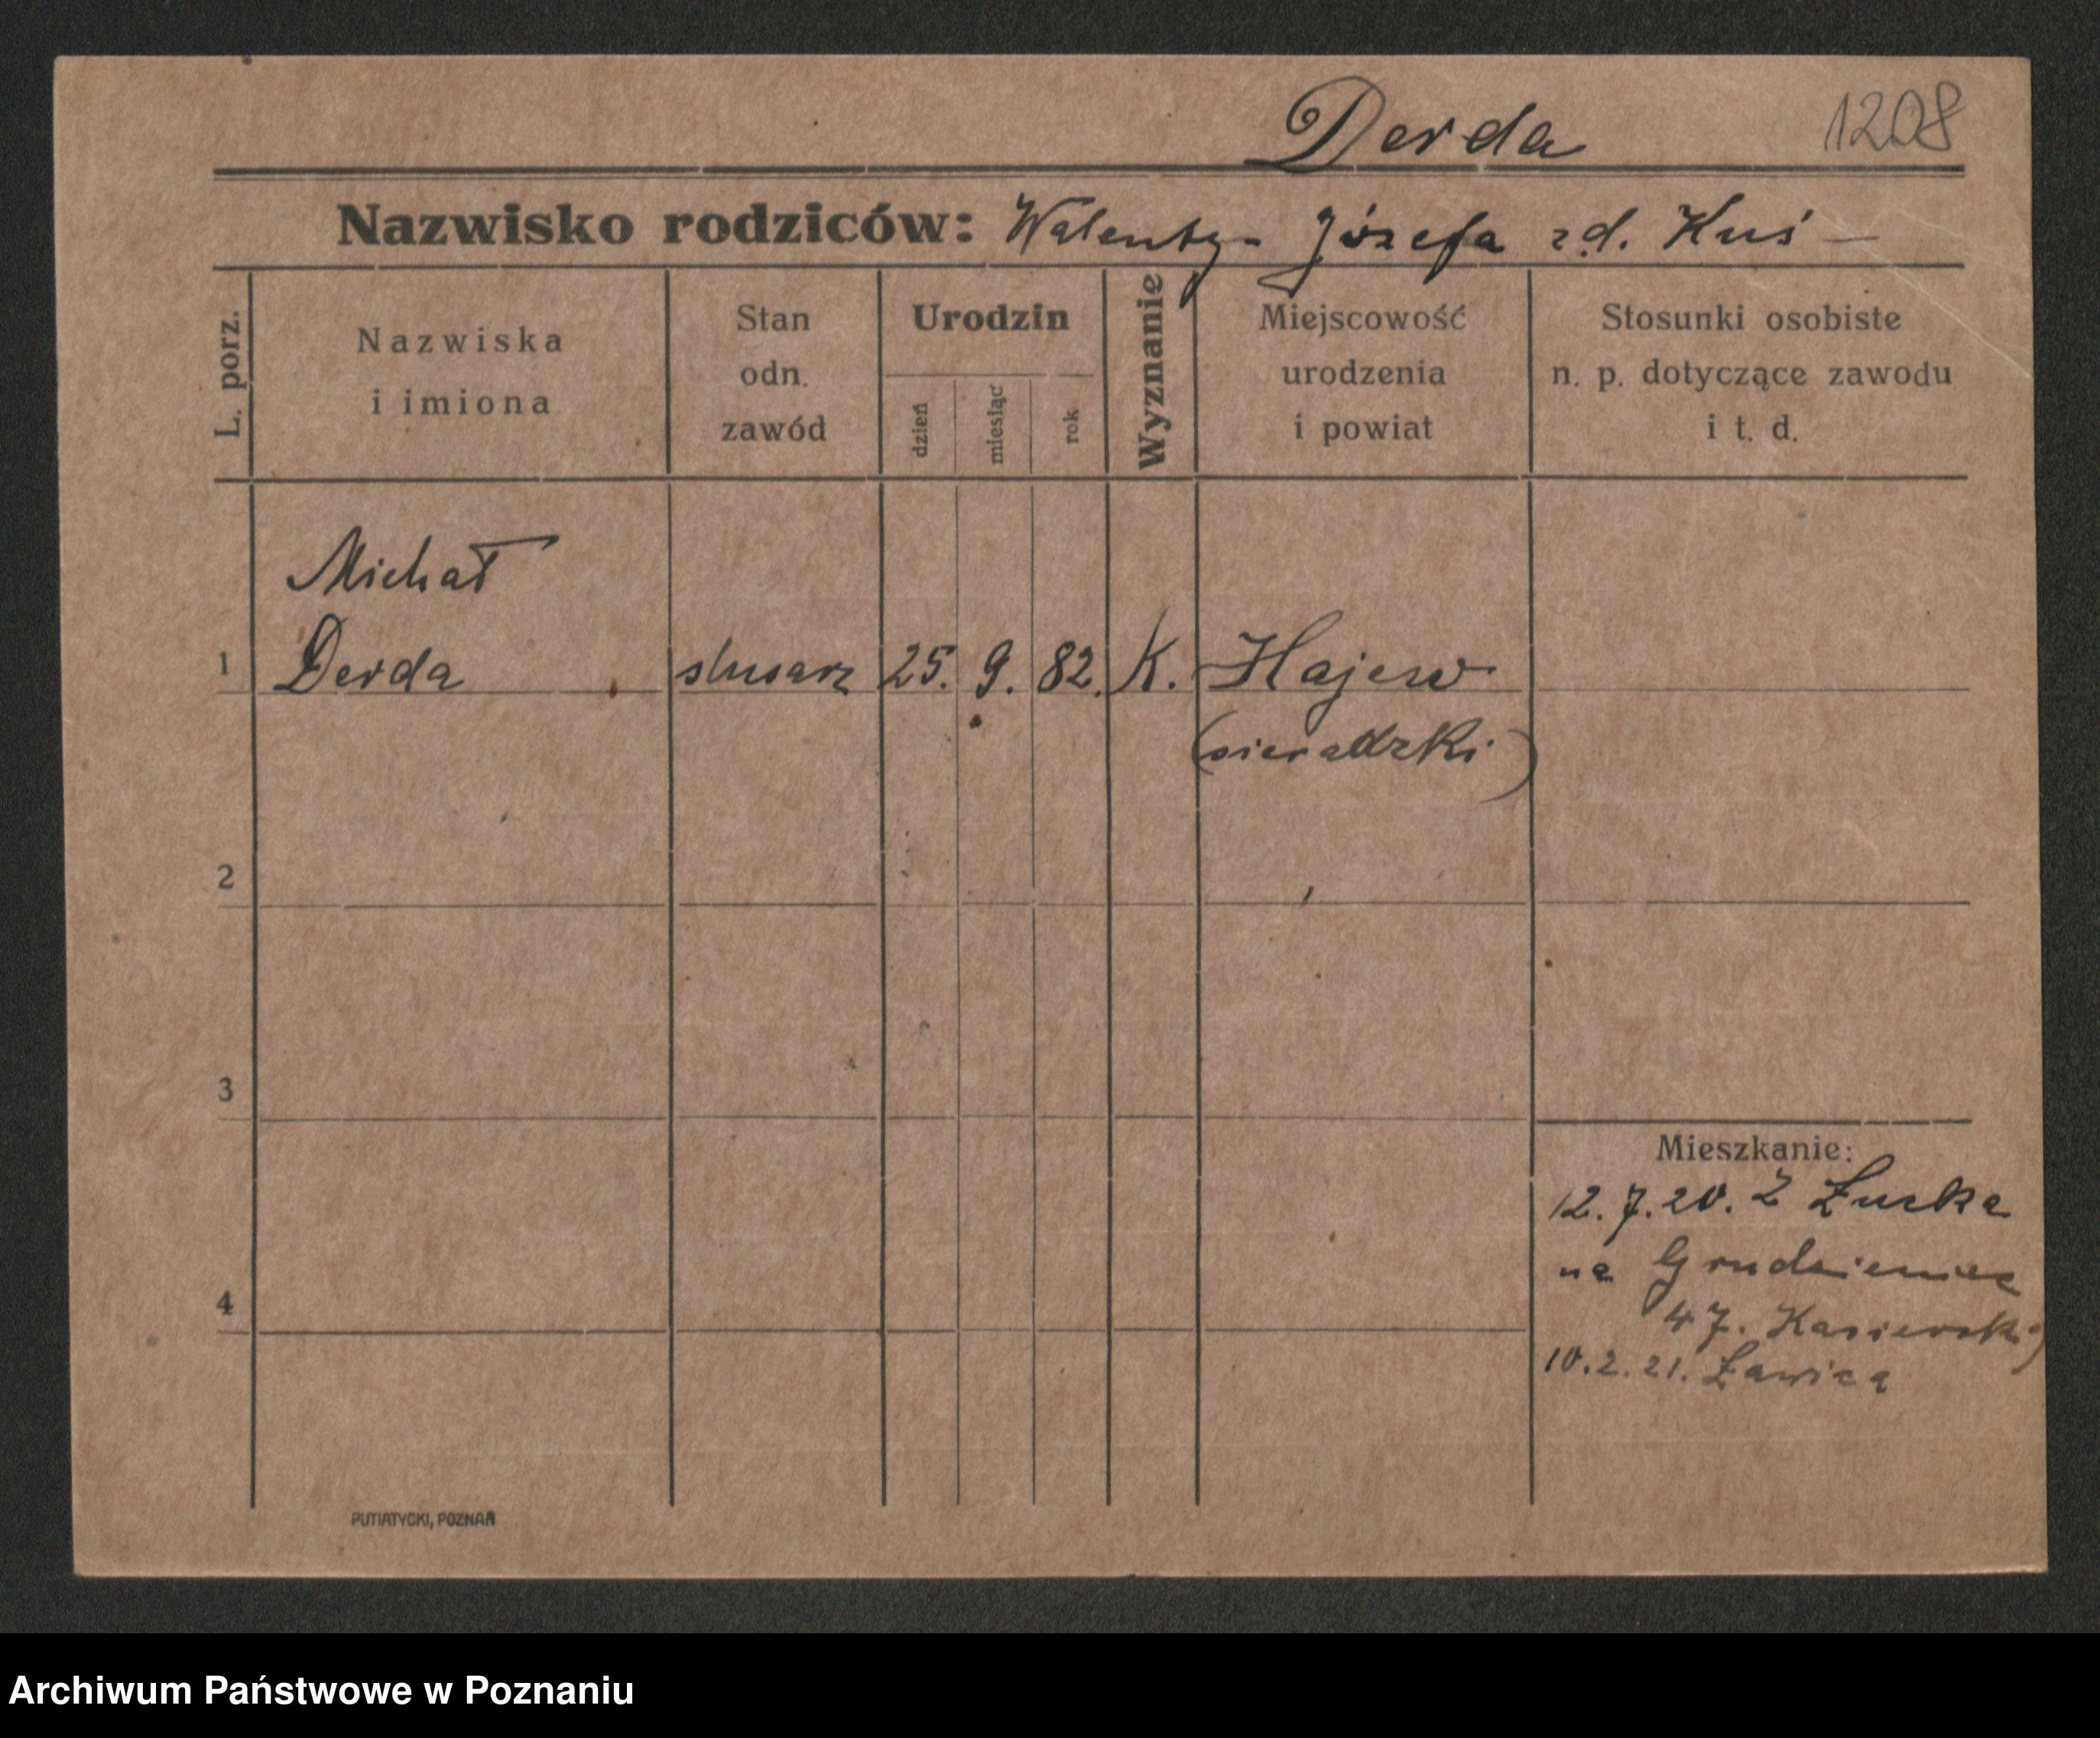 Derda 1208
Nazwisko rodziców: Walenty - Józefa zd. Kuś -
L. porz.
Nazwiska
i imiona
Stan
odn.
zawód
Urodzin
dzień
miesiąc
rok
Wyznanie
Miejscowość
urodzenia
i powiat
Stosunki osobiste
n. p. dotyczące zawodu
i t. d.
Michał
1 Derda slusarz 25. 9. 82. K. Hajew
(sieradzki)
2
3
4
Mieszkanie:
12.7.20. Z
na Grudzieniec
47.
10.2.21. Ławica
PUTIATYCKI, POZNAŃ
Archiwum Państwowe w Poznaniu